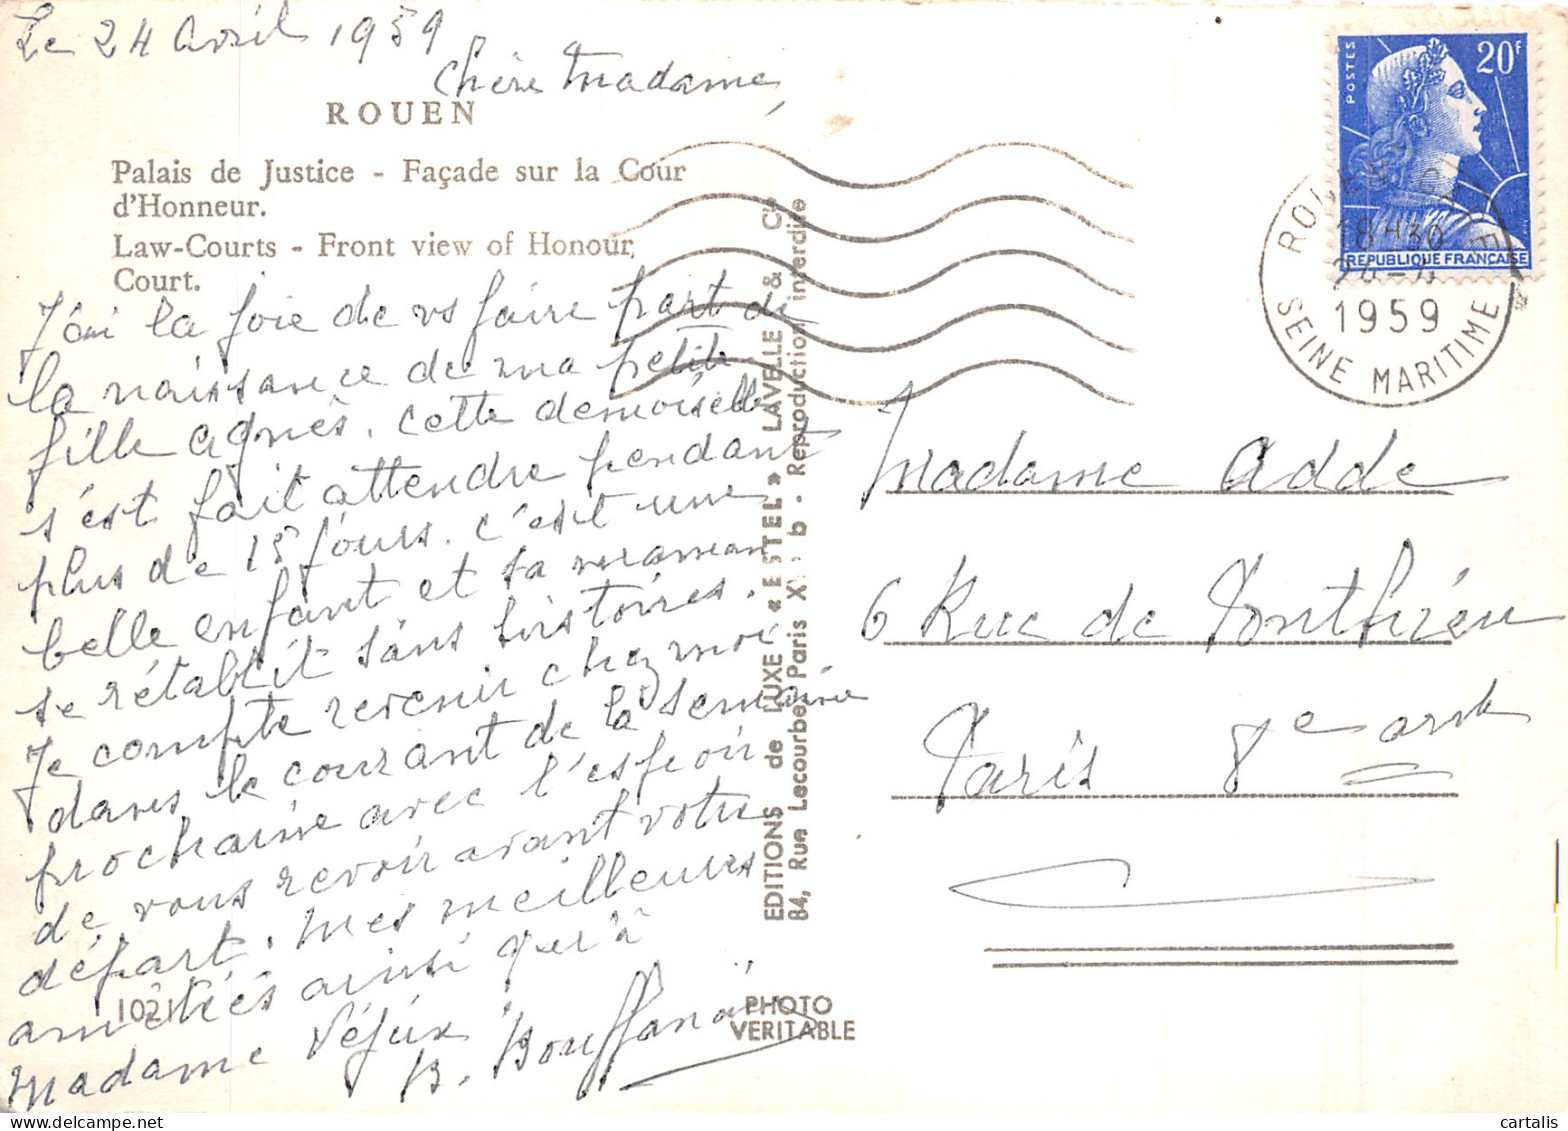 Le 24 Avril 1959
Chère Madame,
ROUEN
Palais de Justice - Façade sur la Cour
d'Honneur.
Law-Courts - Front view of Honour
Court.
J'ai la joie de vs faire part de
la naissance de ma petite
fille Agnès. Cette demoiselle
s'est fait attendre pendant
plus de 15 jours. C'est une
belle enfant et sa maman
se rétablit sans histoires.
Je compte revenir chez moi
dans le courant de la semaine
prochaine avec l'espoir
de vous revoir avant votre
départ. Mes meilleures
amitiés ainsi qu'à
Madame Véjux
B. Bouffanais
1021
EDITIONS de LUXE « ESTEL » LAVELLE & Cie
84, Rue Lecourbe, Paris b - Reproduction interdite
PHOTO
VERITABLE
POSTES
20F
REPUBLIQUE FRANÇAISE
ROUEN GARE
18H30
24-4
1959
SEINE MARITIME
Madame Adde
6 Rue de Ponthieu
Paris 8e arrt
cartalis